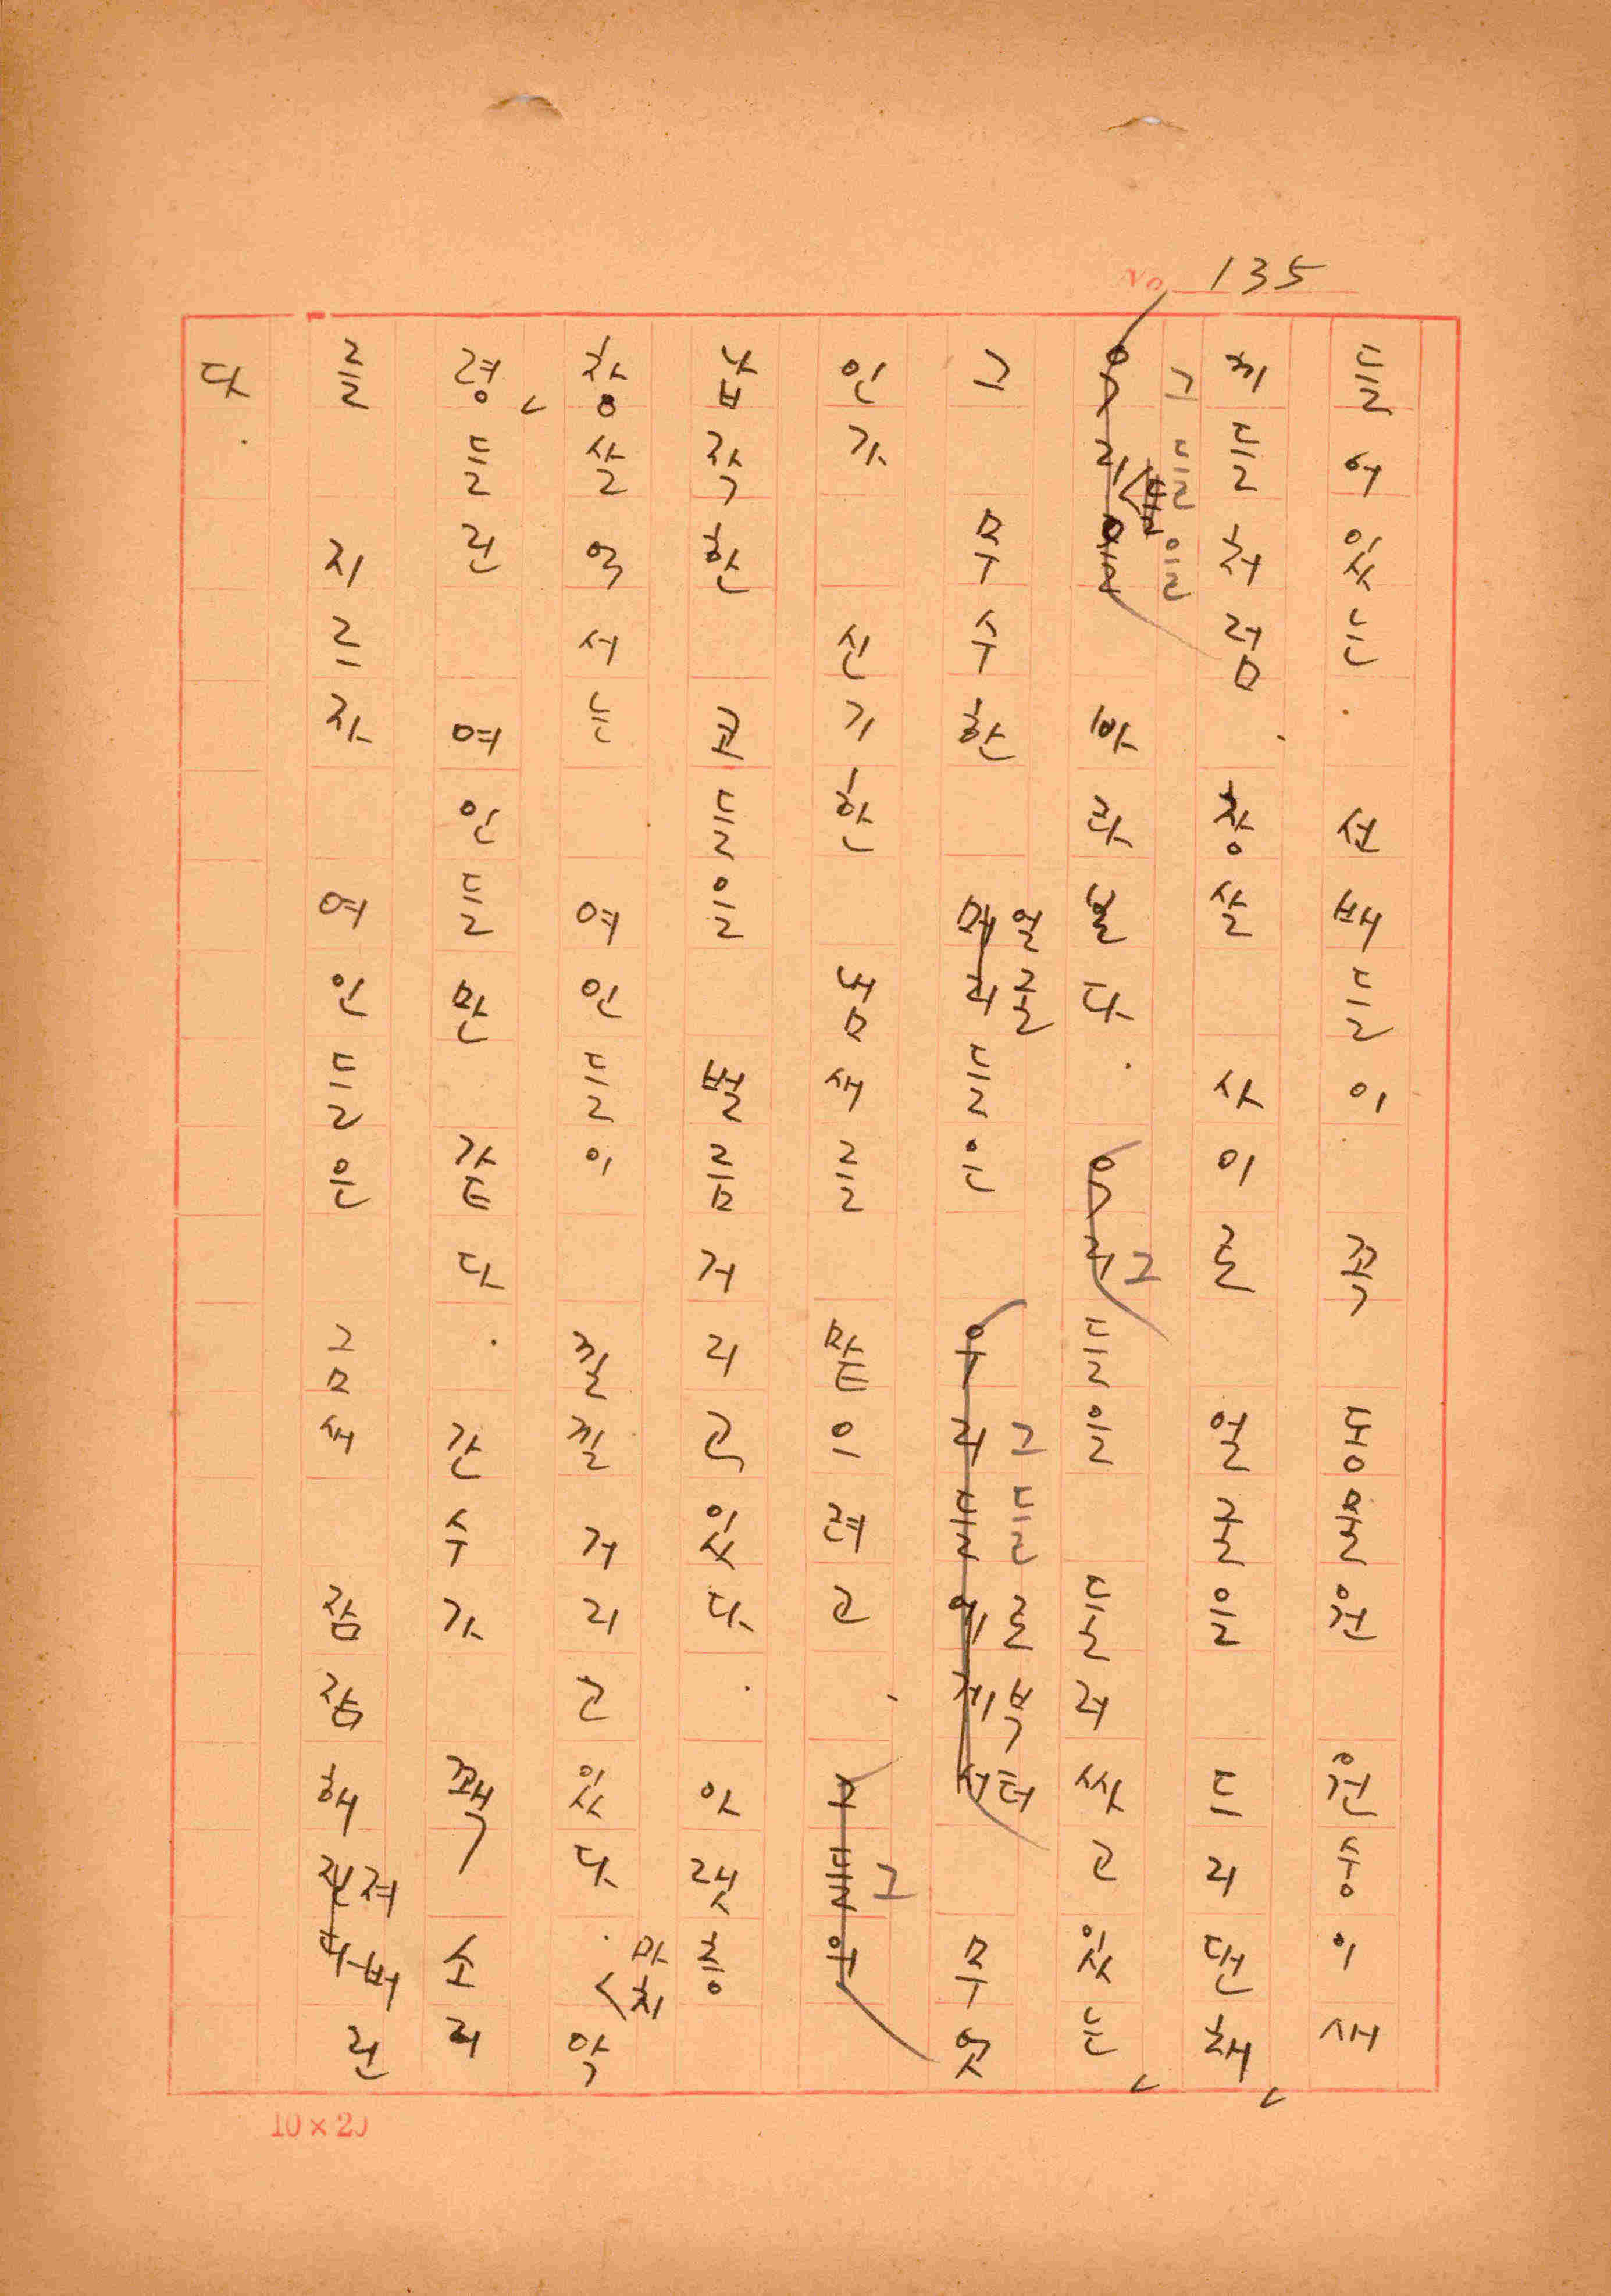 No. 135
들어있는. 선배들이 꼭 동물원 원숭이 새
끼들처럼, 창살 사이로 얼굴을 드리댄채,
그들을
우리 바라본다. 우리 그들을 둘러싸고 있는,
얼굴 그들로부터
그 무수한 머리들은 우리들에게서 무엇
인가 신기한 냄새를 맡으려고, 그
납작한 코들을 벌름거리고있다. 아랫층
마치
창살 억서는 여인들이 낄낄거리고 있다. 악
령, 들린 여인들만 같다. 간수가 꽥 소리
져버
를 지르자 여인들은 금새 잠잠해진다린
다.
10×20